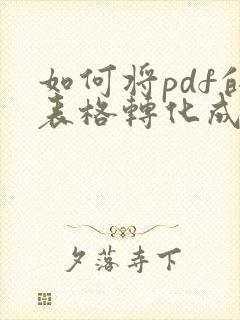 如何将pdf的
表格轉化成
夕落寺下